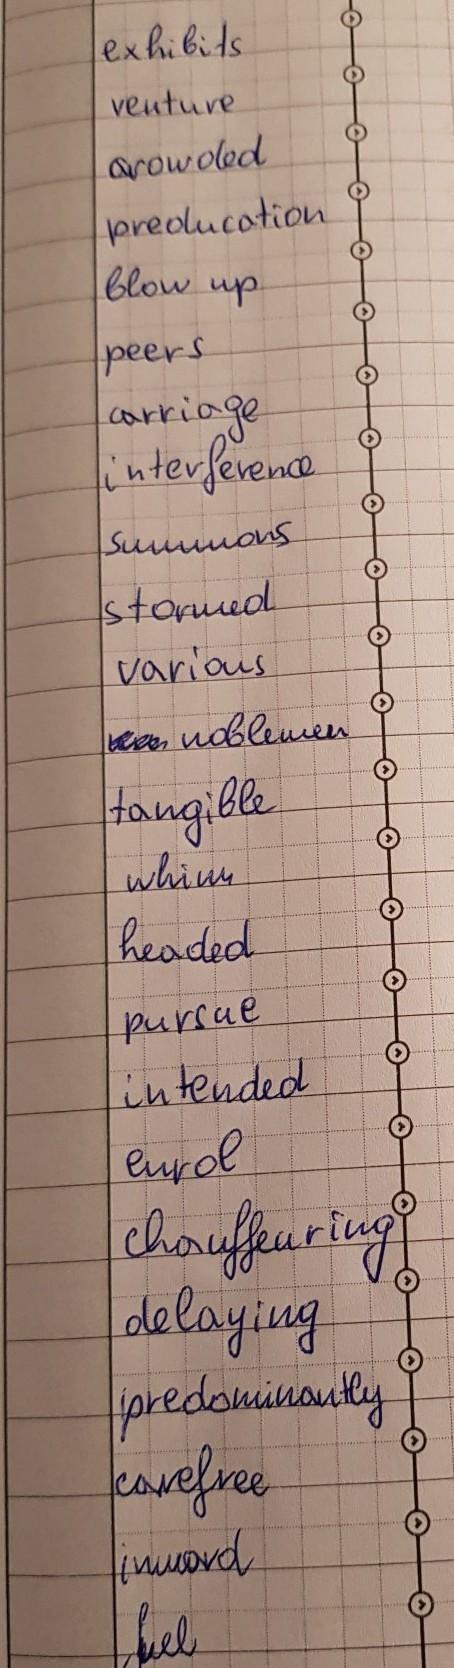 exhibits
venture
crowded
preducation
blow up
peers
carriage
interference
summons
stormed
various
noblemen
tangible
whim
headed
pursue
intended
enrol
chauffeuring
delaying
predominantly
carefree
inward
fuel